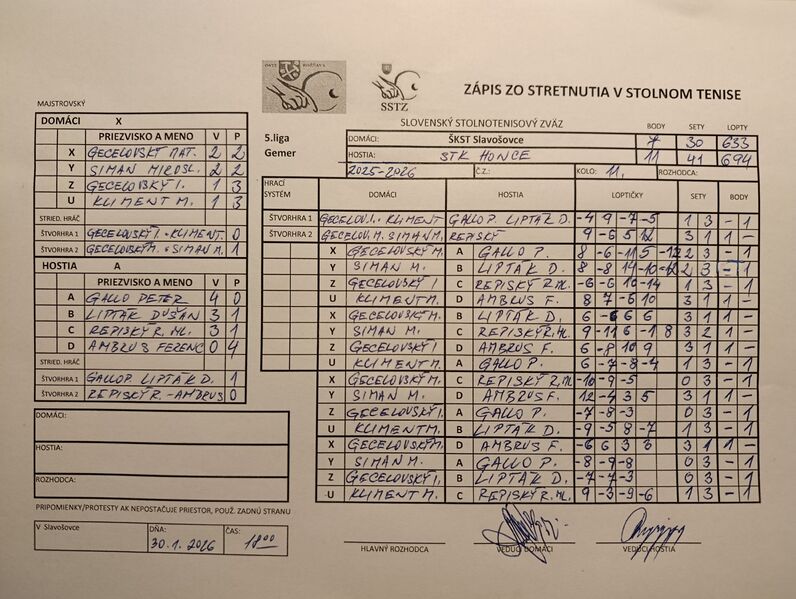 OSTZ ROŽŇAVA
SSTZ
ZÁPIS ZO STRETNUTIA V STOLNOM TENISE
SLOVENSKÝ STOLNOTENISOVÝ ZVÄZ
MAJSTROVSKÝ
DOMÁCI X
PRIEZVISKO A MENO V P
X GECELOVSKÝ MAT. 2 2
Y SIMAN MIROSL. 2 2
Z GECELOVSKÝ I. 1 3
U KLIMENT M. 1 3
STRIED. HRÁČ
ŠTVORHRA 1 GECELOVSKÝ I. - KLIMENT 0
ŠTVORHRA 2 GECELOVSKÝ M. - SIMAN M. 1
HOSTIA A
PRIEZVISKO A MENO V P
A GALLO PETER 4 0
B LIPTÁK DUŠAN 3 1
C REPISKÝ R. ML. 3 1
D AMBRUS FERENC 0 4
STRIED. HRÁČ
ŠTVORHRA 1 GALLO P. LIPTÁK D. 1
ŠTVORHRA 2 REPISKÝ R. - AMBRUS 0
DOMÁCI:
HOSTIA:
ROZHODCA:
PRIPOMIENKY/PROTESTY AK NEPOSTAČUJE PRIESTOR, POUŽ. ZADNÚ STRANU
V Slavošovce DŇA: 30.1.2026 ČAS: 18 00
5.liga
Gemer
BODY SETY LOPTY
DOMÁCI: ŠKST Slavošovce 7 30 633
HOSTIA: STK HONCE 11 41 694
2025-2026 Č.Z.: KOLO: 11. ROZHODCA:
HRACÍ SYSTÉM DOMÁCI HOSTIA LOPTIČKY SETY BODY
ŠTVORHRA 1 GECELOV. I. - KLIMENT GALLO P. LIPTÁK D. -4 9 -7 -5 1 3 - 1
ŠTVORHRA 2 GECELOV. M. SIMAN M. REPISKÝ 9 -6 5 12 3 1 1 -
X GECELOVSKÝ M. A GALLO P. 8 -6 -11 5 -12 2 3 - 1
Y SIMAN M. B LIPTÁK D. 8 -8 14 -10 -12 2 3 - 1
Z GECELOVSKÝ I C REPISKÝ R. ML. -6 -6 10 -14 1 3 - 1
U KLIMENT M. D AMBRUS F. 8 7 -6 10 3 1 1 -
X GECELOVSKÝ M. B LIPTÁK D. 6 -6 6 6 3 1 1 -
Y SIMAN M. C REPISKÝ R. ML. 9 -11 6 -1 8 3 2 1 -
Z GECELOVSKÝ I D AMBRUS F. 6 -8 10 9 3 1 1 -
U KLIMENT M. A GALLO P. 6 -7 -8 -4 1 3 - 1
X GECELOVSKÝ M. C REPISKÝ R. ML. -10 -9 -5 0 3 - 1
Y SIMAN M. D AMBRUS F. 12 -4 3 5 3 1 1 -
Z GECELOVSKÝ I. A GALLO P. -7 -8 -3 0 3 - 1
U KLIMENT M. B LIPTÁK D. -9 -5 8 -7 1 3 - 1
X GECELOVSKÝ M. D AMBRUS F. -6 6 3 3 3 1 1 -
Y SIMAN M. A GALLO P. -8 -9 -8 0 3 - 1
Z GECELOVSKÝ I. B LIPTÁK D. -7 -7 -3 0 3 - 1
U KLIMENT M. C REPISKÝ R. ML. 9 -3 -9 -6 1 3 - 1
HLAVNÝ ROZHODCA VEDÚCI DOMÁCI VEDÚCI HOSTIA